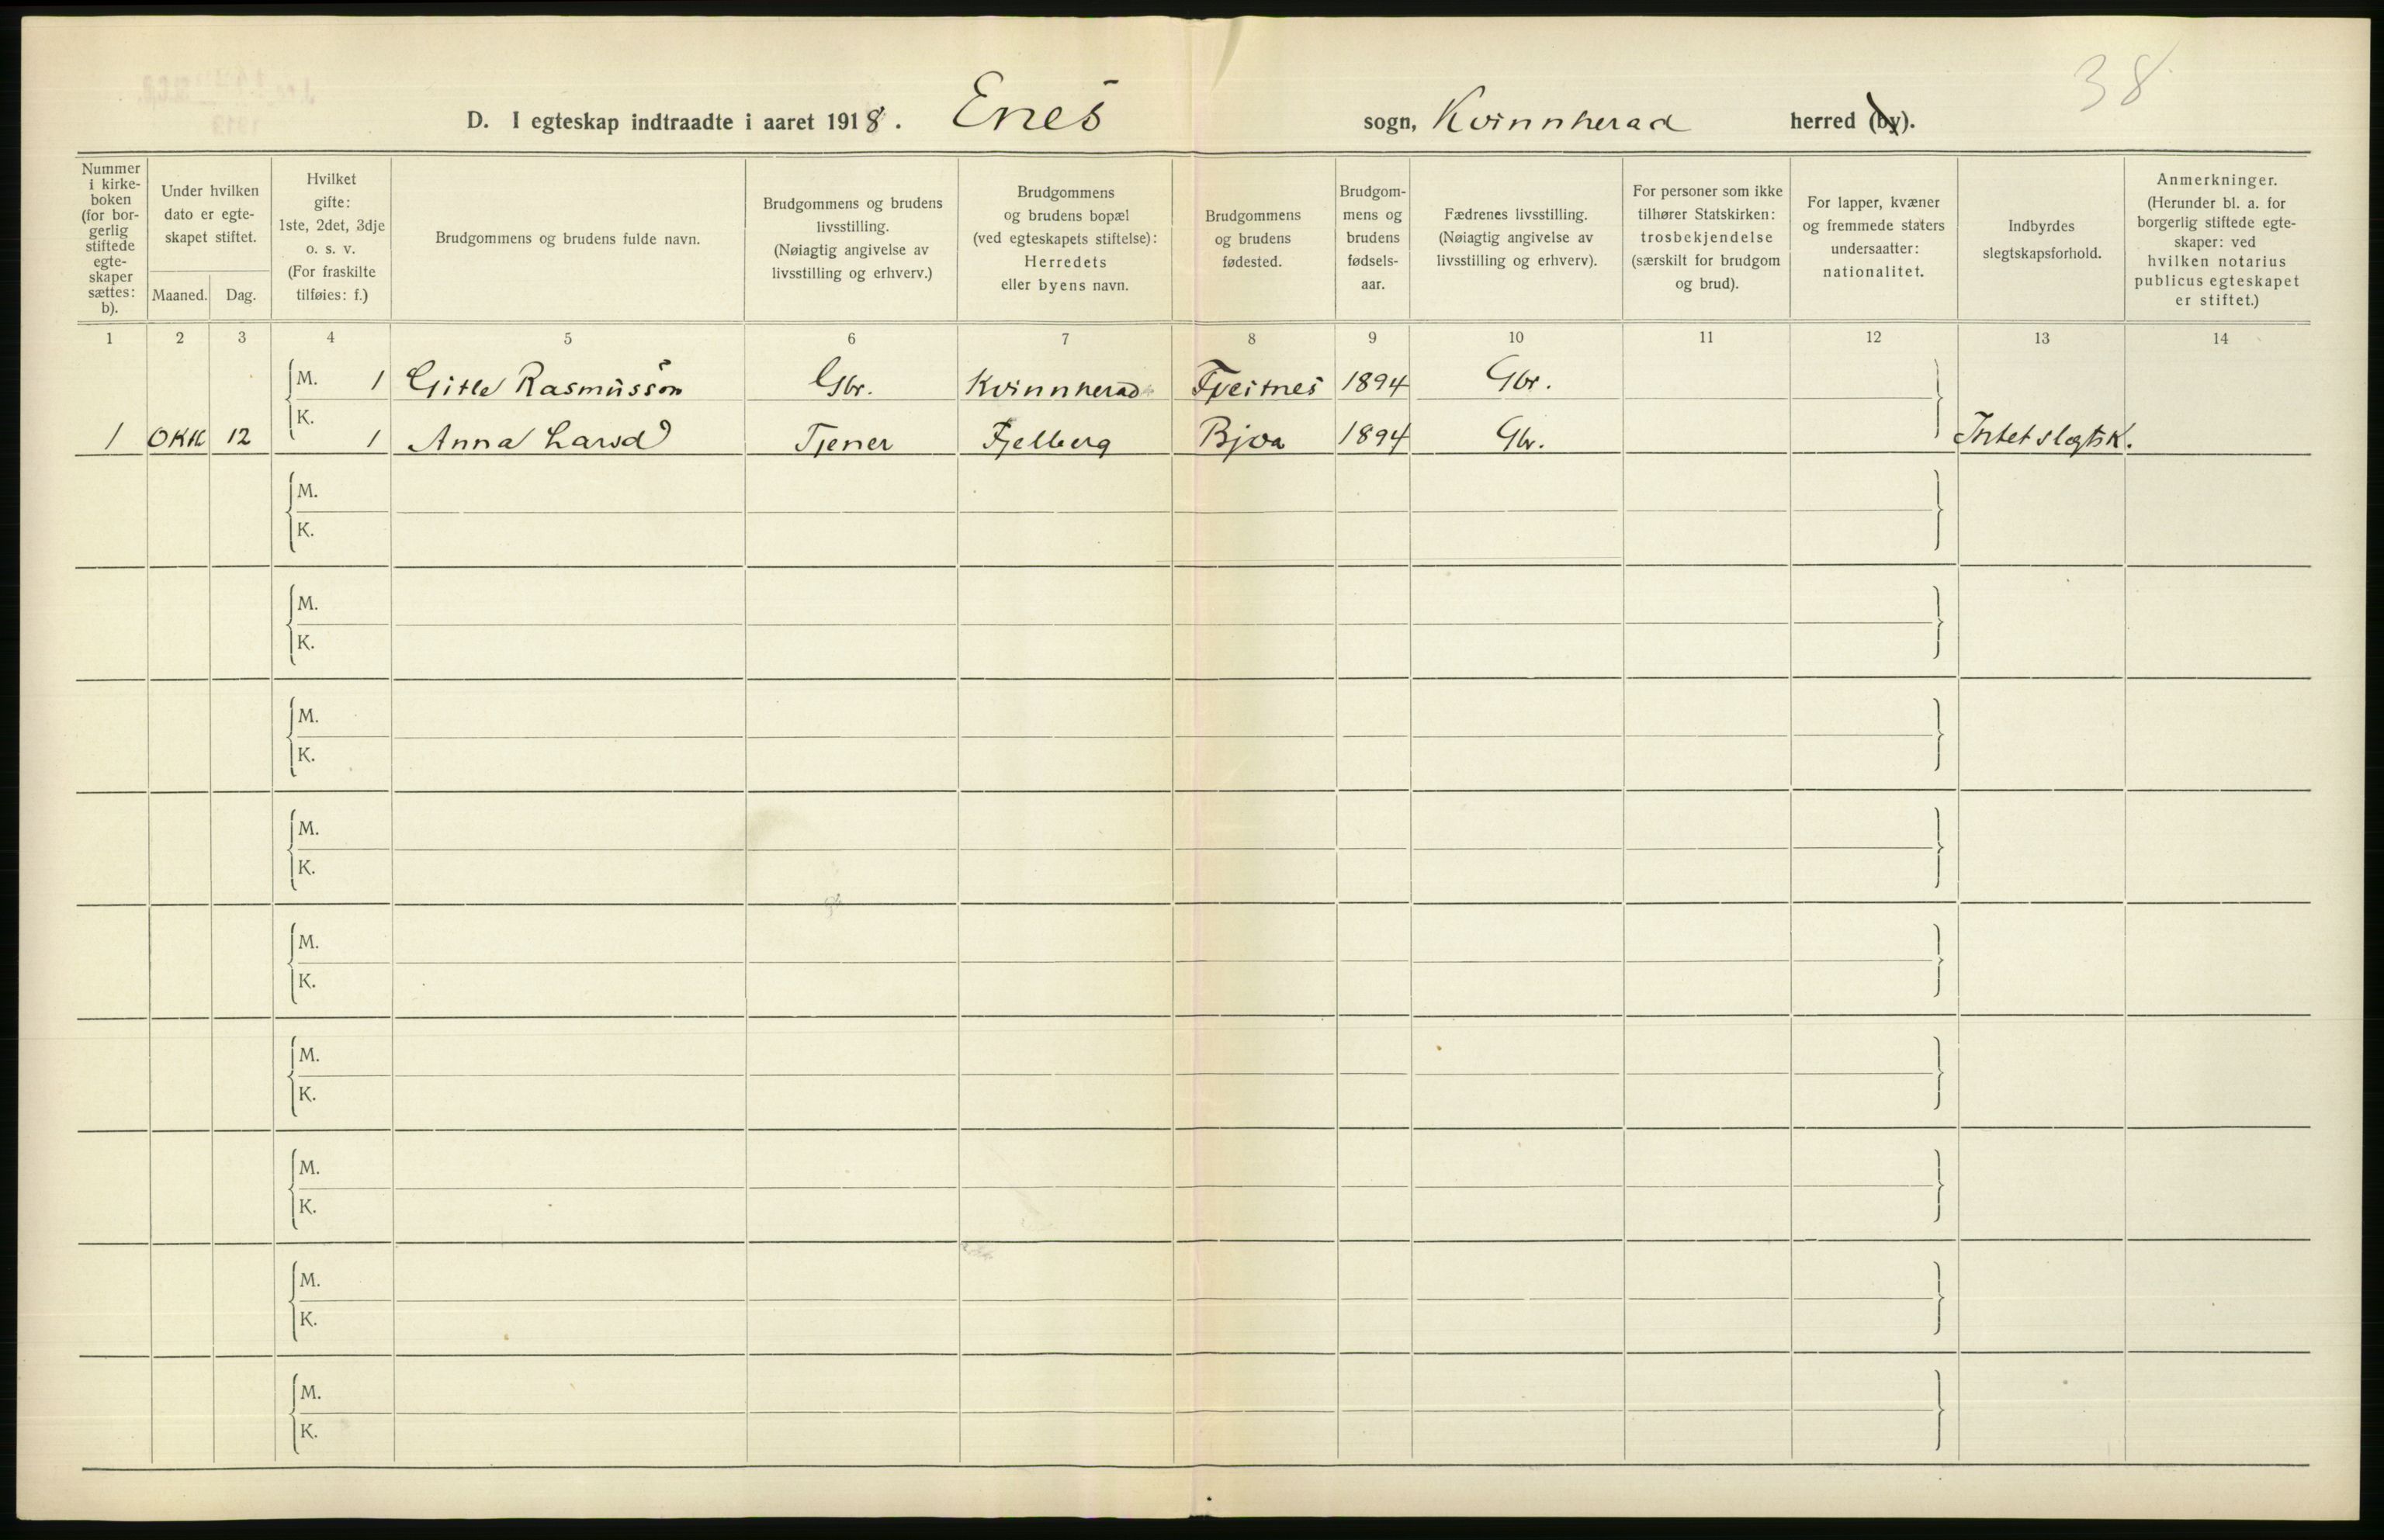 38
D. I egteskap indtraadte i aaret 1918. Enes sogn, Kvinnherad herred (by).
Nummer i kirkeboken (for borgerlig stiftede egteskaper sættes: b).
Under hvilken dato er egteskapet stiftet.
Maaned. Dag.
Hvilket gifte: 1ste, 2det, 3dje o. s. v. (For fraskilte tilføies: f.)
Brudgommens og brudens fulde navn.
Brudgommens og brudens livsstilling. (Nøiagtig angivelse av livsstilling og erhverv.)
Brudgommens og brudens bopæl (ved egteskapets stiftelse): Herredets eller byens navn.
Brudgommens og brudens fødested.
Brudgommens og brudens fødselsaar.
Fædrenes livsstilling. (Nøiagtig angivelse av livsstilling og erhverv).
For personer som ikke tilhører Statskirken: trosbekjendelse (særskilt for brudgom og brud).
For lapper, kvæner og fremmede staters undersaatter: nationalitet.
Indbyrdes slegtskapsforhold.
Anmerkninger. (Herunder bl. a. for borgerlig stiftede egteskaper: ved hvilken notarius publicus egteskapet er stiftet.)
1 2 3 4 5 6 7 8 9 10 11 12 13 14
M. 1 Gitle Rasmusson Gbr. Kvinnherad Tveitnes 1894 Gbr.
1 12 K. 1 Anna Larsd Tjener Fjelberg Bjoa 1894 Gbr. Intet slegtsk.
M.
K.
M.
K.
M.
K.
M.
K.
M.
K.
M.
K.
M.
K.
M.
K.
M.
K.